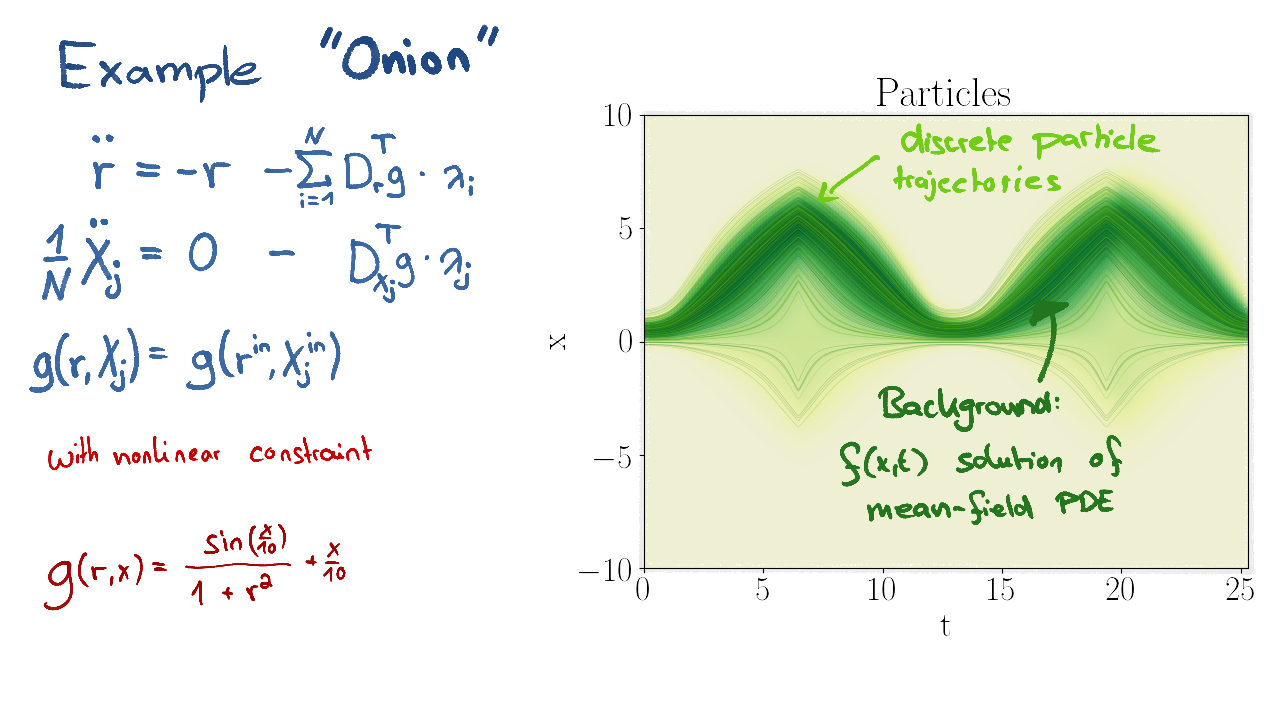 Example "Onion"
r̈ = -r - ∑_{i=1}^{N} D_r^T g · λ_i
1/N Ẍ_j = 0 - D_{x_j}^T g · λ_j
g(r, X_j) = g(r^{in}, X_j^{in})
with nonlinear constraint
g(r,x) = sin(x/10)/(1 + r^2) + x/10
Particles
discrete particle
trajectories
Background:
f(x,t) solution of
mean-field PDE
10
5
0
−5
−10
x
0 5 10 15 20 25
t